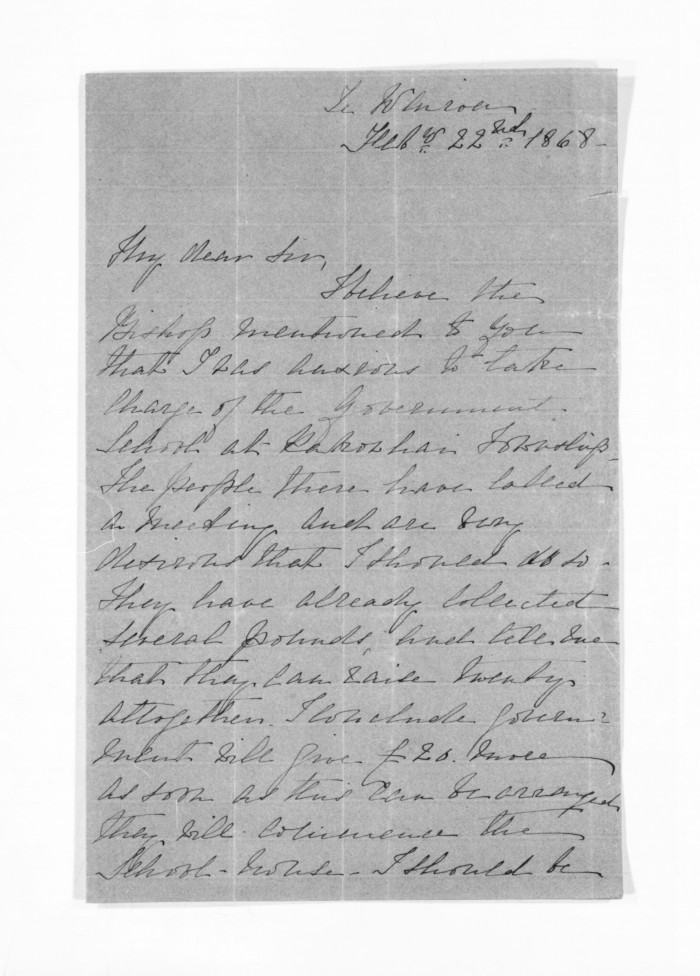 Te Wairoa
Feby 22nd 1868-
My dear Sir,
I believe the
Bishop mentioned to you
that I was anxious to take
charge of the Government
School at
Township
The people there have called
a meeting and are very
desirous that I should do so -
They have already collected
several pounds, and tell me
that they can raise twenty
altogether. I conclude govern=
ment will give £20. more
as soon as this can be arranged
they will commence the
School-house - I should be